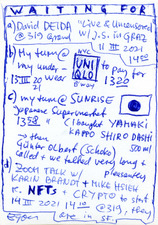 WAITING FOR
a) David DEIDA "Live & Uncensored
@ 319 Grand W/J.S. in GRAZ
11 III 2021
14 00
b) My turn @ NYC
my undu-
15 III 2021
UNI QLO
to pay for
13 20
B'way
c) my turn @ SUNRISE
Japanese Supermarket
13 58 I bought YAMAKI
KAPPO SHIRO DASHI
500 ml
→ then
Günter Olbert (Schoko)
called & we talked very long &
pleasantly
d) ZOOM TALK W/
KARIN BRANDT + MIKE HSIEH
re. NFTs + CRYPTO to start
14 III 2021 14 00 @ 319, they
are in SF.